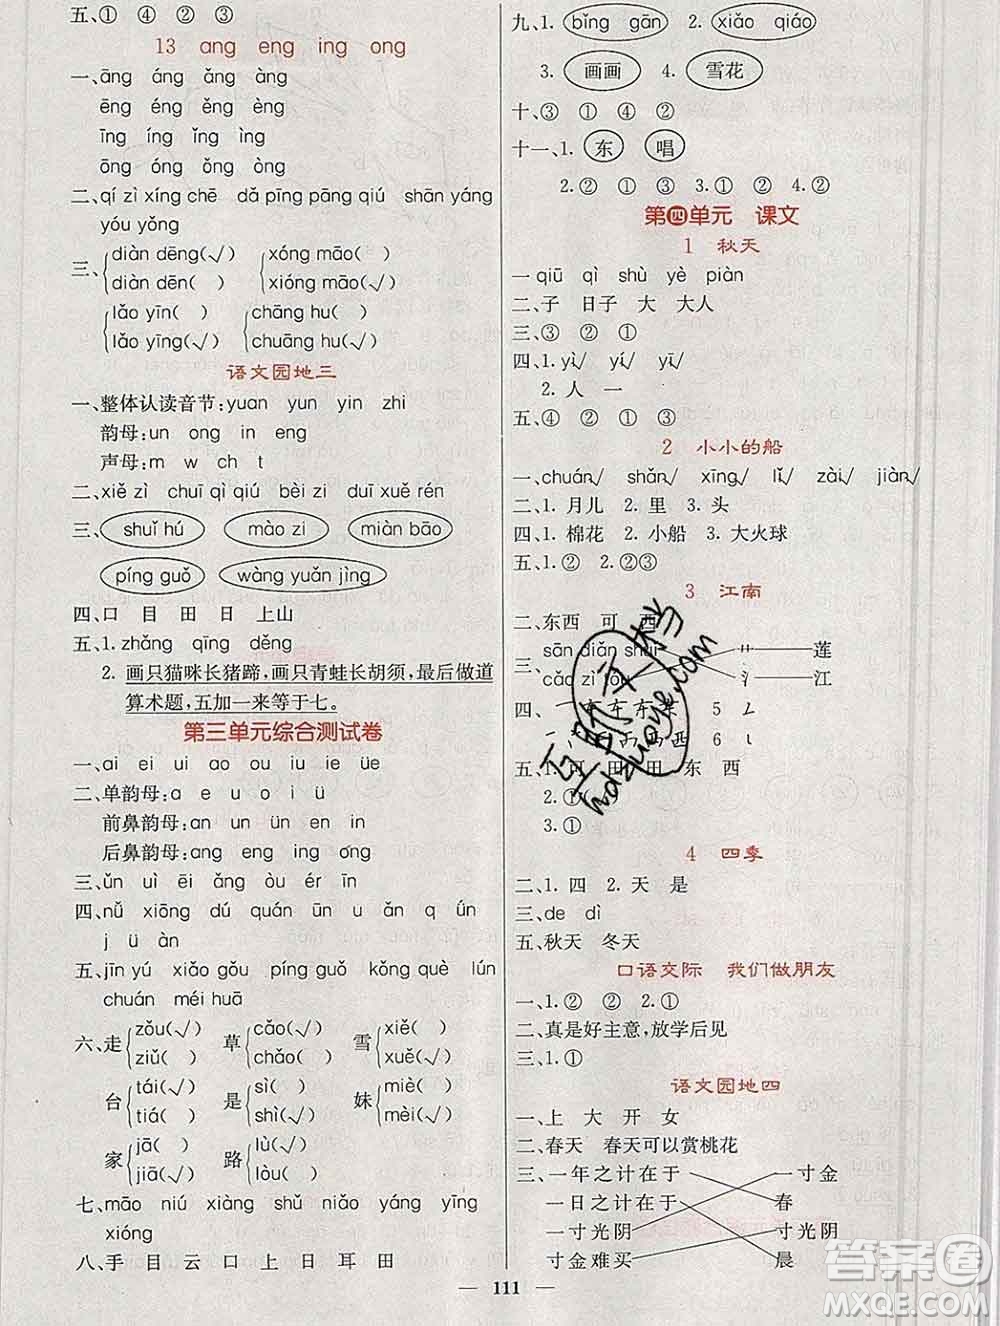 五、① ④ ② ③
13 ang eng ing ong
一、āng áng ǎng àng
ēng éng ěng èng
īng íng ǐng ìng
ōng óng ǒng òng
二、qí zì xíng chē dǎ pīng pāng qiú shān yáng
yóu yǒng
三、diàn dēng(√) xóng māo( )
diàn dēn( ) xióng māo(√)
lǎo yīn( ) chāng hu( )
lǎo yīng(√) chuāng hu(√)
语文园地三
一、整体认读音节:yuan yun yin zhi
韵母:un ong in eng
声母:m w ch t
二、xiě zì chuī qì qiú bèi zi duī xuě rén
三、shuǐ hú mào zi miàn bāo
píng guǒ wàng yuǎn jìng
四、口 目 田 日 上山
五、1.zhǎng qīng děng
2.画只猫咪长猪蹄,画只青蛙长胡须,最后做道
算术题,五加一来等于七。
第三单元综合测试卷
一、ai ei ui ao ou iu ie üe
二、单韵母:a e u o i ü
前鼻韵母:an un ün en in
后鼻韵母:ang eng ing ong
三、ǔn uì ēi ǎng òu ér īn
四、nǚ xiōng dú quán ūn u ǎn q ǘn
j ü àn
五、jīn yú xiǎo gǒu píng guǒ kǒng què lún
chuán méi huā
六、走 zǒu(√) 草 cǎo(√) 雪 xiě( )
ziǔ( ) chǎo( ) xuě(√)
台 tái(√) 是 sì( ) 妹 miè( )
tiá( ) shì(√) mèi(√)
家 jā( ) 路 lù(√)
jiā(√) lòu( )
七、māo niú xiàng shǔ niǎo yáng yīng
xióng
八、手 目 云 口 上 日 耳 田
九、1.bǐng gān 2.xiǎo qiáo
3.画画 4.雪花
十、③ ① ④ ②
十一、1.东 唱
2.② ① ③ 3.① ② 4.②
第四单元 课文
1 秋天
一、qiū qì shù yè piàn
二、子 日子 大 大人
三、③ ② ①
四、1.yì/ yí/ yī/
2.人 一
五、④ ② ① ③
2 小小的船
一、chuán/ shǎn/ xīng/ lǐ/ zài/ jiàn/
二、1.月儿 2.里 3.头
四、1.棉花 2.小船 3.大火球
五、1.② 2.②③
3 江南
二、东西 可 西
三、sān diǎn shuǐ 莲
cǎo zì tóu 氵 江
四、
五、1.可 田 田 东 西
2.①
3.①
4 四季
二、1.四 2.天 是
三、de dì
五、秋天 冬天
口语交际 我们做朋友
一、1.② ② 2.①
二、真是好主意,放学后见
三、1.①
语文园地四
一、上 大 开 女
二、春天 春天可以赏桃花
三、一年之计在于 一寸金
一日之计在于 春
一寸光阴 寸光阴
寸金难买 晨
111
hdzuoye.com
答案圈
MXQE.COM